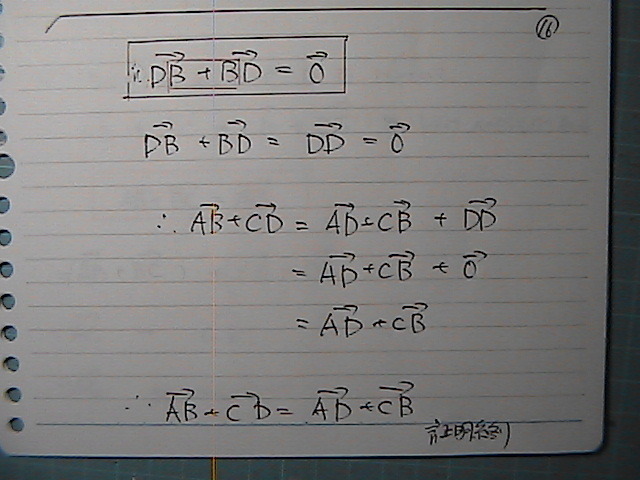 ⑯
∵ DB→ + BD→ = 0→
DB→ + BD→ = DD→ = 0→
∴ AB→ + CD→ = AD→ + CB→ + DD→
= AD→ + CB→ + 0→
= AD→ + CB→
∴ AB→ + CD→ = AD→ + CB→
証明終